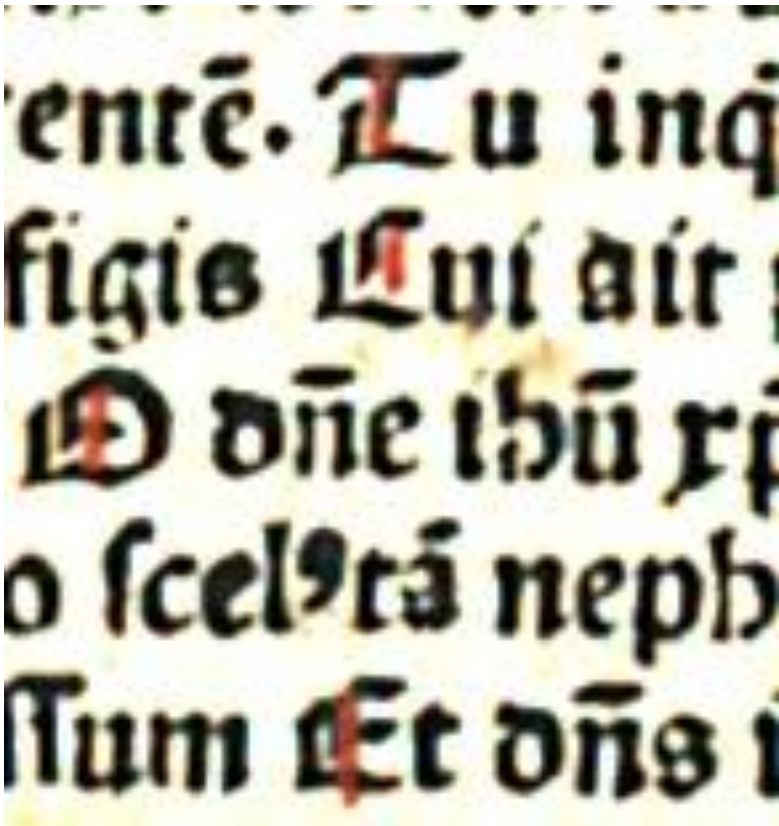 entē. Tu inq̄
figis Cui ait
O dn̄e ihū xp̄
o ſcel’tā neph
ſſum Et dn̄s